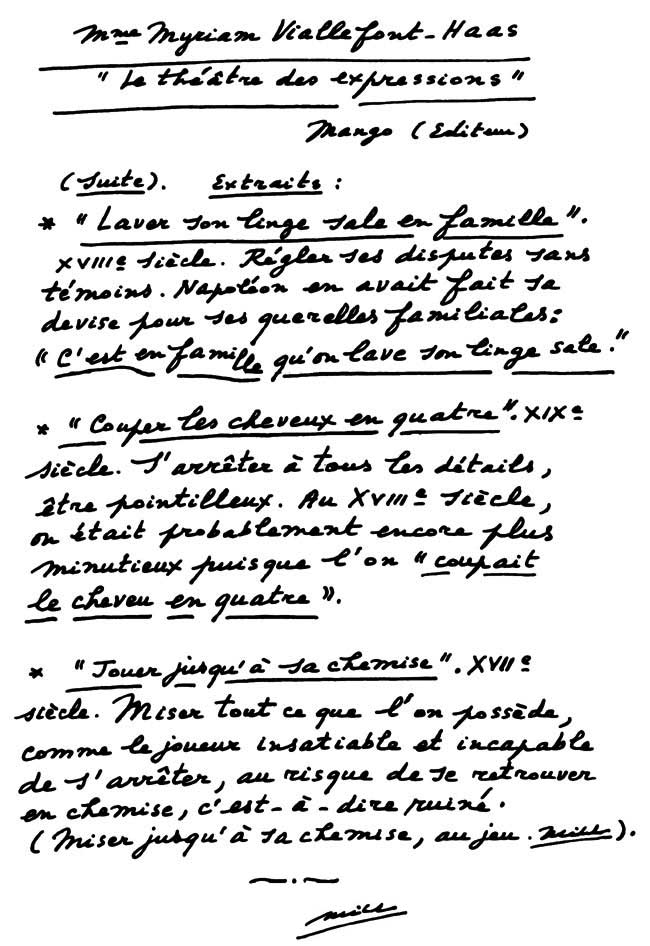 Mme Myriam Viallefont-Haas
"Le théâtre des expressions"
Mango (Editeur)
(Suite). Extraits :
* "Laver son linge sale en famille".
XVIIIe siècle. Régler ses disputes sans
témoins. Napoléon en avait fait sa
devise pour ses querelles familiales:
"C'est en famille qu'on lave son linge sale."
* "Couper les cheveux en quatre". XIXe
siècle. S'arrêter à tous les détails,
être pointilleux. Au XVIIIe siècle,
on était probablement encore plus
minutieux puisque l'on "coupait
le cheveu en quatre".
* "Jouer jusqu'à sa chemise". XVIIe
siècle. Miser tout ce que l'on possède,
comme le joueur insatiable et incapable
de s'arrêter, au risque de se retrouver
en chemise, c'est-à-dire ruiné.
(Miser jusqu'à sa chemise, au jeu. ).